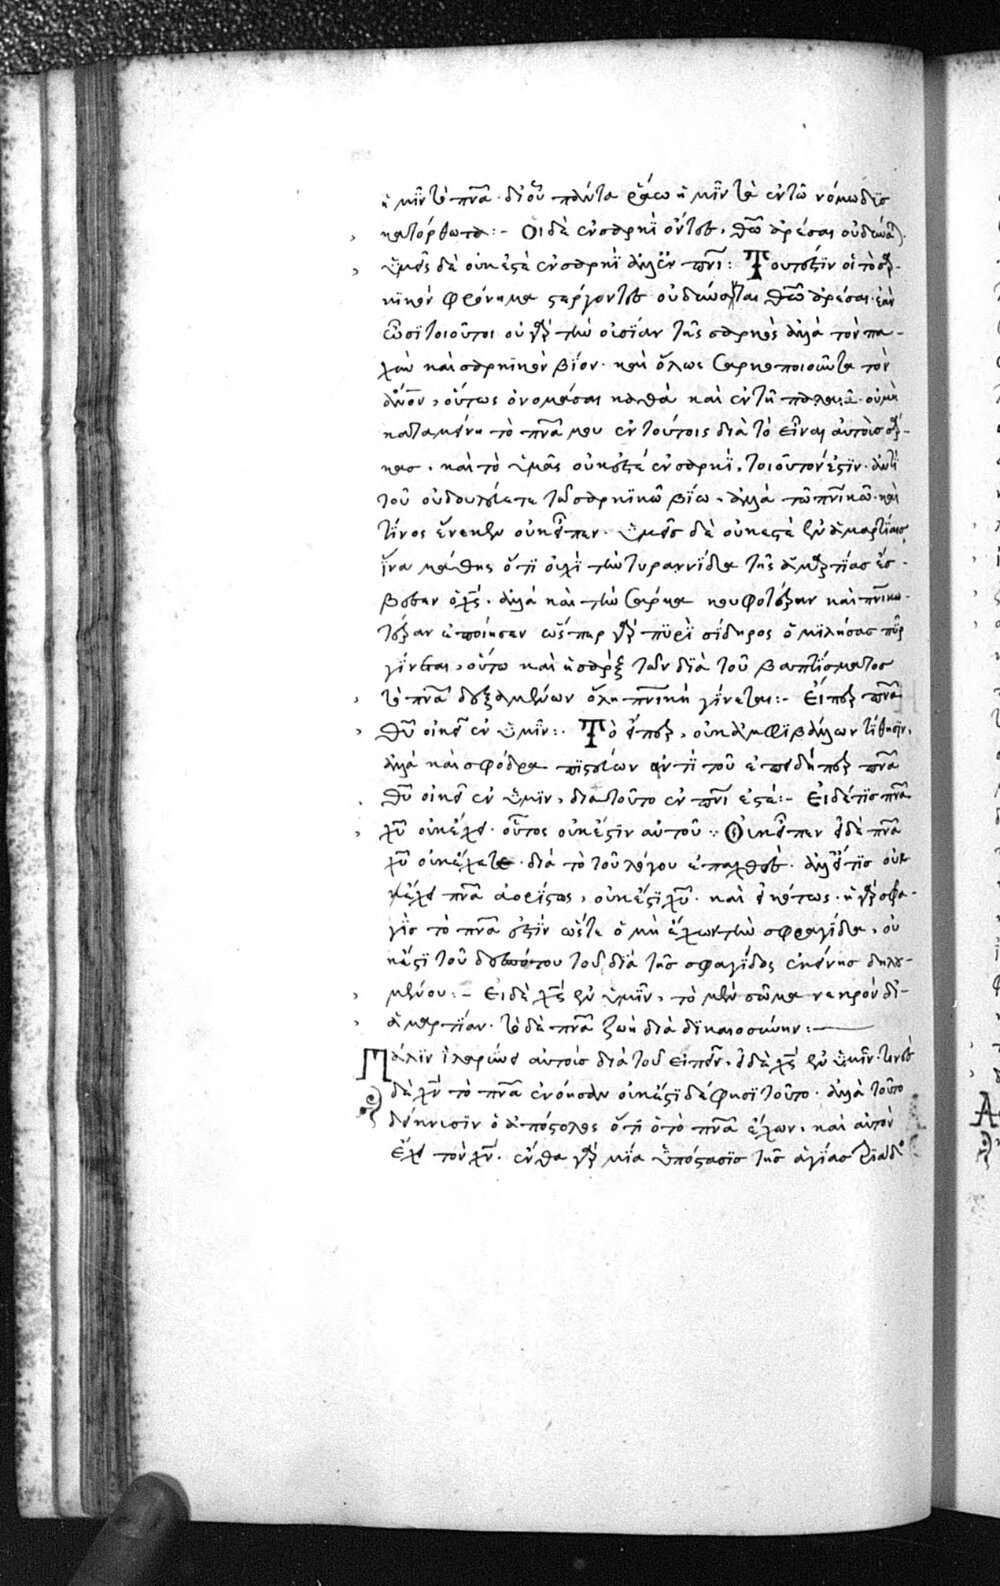 ἡμῖν τὸ πνᾶ· δι' οὗ πάντα ῥάω ἡμῖν τὰ ἐν τῶ νόμω δϊσ
κατόρθωτα:- Οἱ δὲ ἐν σαρκῒ ὄντες, θῶ ἀρέσαι οὐ δύνα(ν)
ὑμεῖς δὲ οὐκ ἐστὲ ἐν σαρκῒ ἀλλ' ἐν πνι: Τουτέστιν οἱ τὸ σαρ-
κϊκὸν φρόνημα στέργοντες οὐ δύνανται θῶ ἀρέσαι· ἐὰν
ὦσϊ τοιοῦτοι οὐ γὰρ τὴν οὐσίαν τῆς σαρκὸς ἀλλὰ τὸν πα-
χὺν καὶ σαρκϊκὸν βίον· καὶ ὅλως σαρκοποιοῦντα τὸν
ἄνον, οὕτως ὀνομάσαι καθὰ καὶ ἐν τῆ παλαιᾶ· οὐ μὴ
καταμείνη τὸ πνᾶ μου ἐν τούτοις διὰ τὸ εἶναι αὐτοὺς σάρ-
κας. καὶ τὸ ὑμεῖς οὐκ ἐστὲ ἐν σαρκῒ, τοιοῦτον ἐστϊν· ἀντὶ
τοῦ οὐ δουλεύετε τῶ σαρκϊκῶ βίω, ἀλλὰ τῶ πνϊκῶ· καὶ
τίνος ἕνεκεν οὐκ εἶπεν· ὑμεῖς δὲ οὐκ ἐστὲ ἐν ἁμαρτίαις
ἵνα μάθης ὅτϊ οὐχὶ τὴν τυραννίδα τῆς ἁμαρτίας ἔσ-
βεσεν ὁ χς. ἀλλὰ καὶ τὴν σάρκα κουφοτέραν καὶ πνικω-
τέραν ἐποίησεν ὥσπερ γὰρ πϋρὶ σίδηρος ὁμϊλήσας πῦρ
γίνεται, οὕτω καὶ ἡ σὰρξ τῶν διὰ τοῦ βαπτίσματος
τὸ πνᾶ δεξαμένων ὅλη πνϊκὴ γίνεται:- Εἴπερ πνᾶ
θῦ οἰκεῖ ἐν ὑμῖν:· Τὸ εἴπερ, οὐκ ἀμφϊβάλλων τίθησϊν,
ἀλλὰ καὶ σφόδρα πϊστεύων ἀντὶ τοῦ ἐπειδήπερ πνᾶ
θῦ οἰκεῖ ἐν ὑμῖν, διὰ τοῦτο ἐν πνι ἐστέ:- Εἰ δέ τϊς πνᾶ
χῦ οὐκ ἔχει· οὗτος οὐκ ἔστϊν αὐτοῦ:· Οὐκ εἶπεν εἰ δὲ πνᾶ
χῦ οὐκ ἔχετε· διὰ τὸ τοῦ λόγου ἐπαχθές· ἀλλ' εἴ τϊς οὐκ
ἔχει πνᾶ ἀορίστως, οὐκ ἔστϊ χῦ· καὶ εἰκότως· ἡ γὰρ σφα-
γὶς τὸ πνᾶ ἐστϊν ὥστε ὁ μὴ ἔχων τὴν σφραγίδα, οὐ
κ ἔστϊ τοῦ δεσπότου τοῦ διὰ τῆς σφαγίδος ἐκείνης δηλου-
μένου:- Εἰ δὲ χς ἐν ὑμῖν, τὸ μὲν σῶμα νεκρὸν δι'
ἁμαρτίαν· τὸ δὲ πνᾶ ζωὴ διὰ δϊκαιοσύνην:-
Πάλϊν ἱλαρύνει αὐτοὺς διὰ τοῦ εἰπεῖν, εἰ δὲ χς ἐν ὑμῖν· τινὲς
δὲ χν τὸ πνᾶ ἐνόησαν οὐκ ἔστϊ δέ φησϊ τοῦτο· ἀλλὰ τοῦτο
δείκνυσϊν ὁ ἀπόστολος ὅτϊ ὁ τὸ πνᾶ ἔχων, καὶ αὐτὸν
ἔχει τὸν χν· ἔνθα γὰρ μία ὑπόστασϊς τῆς ἁγίας τριάδο